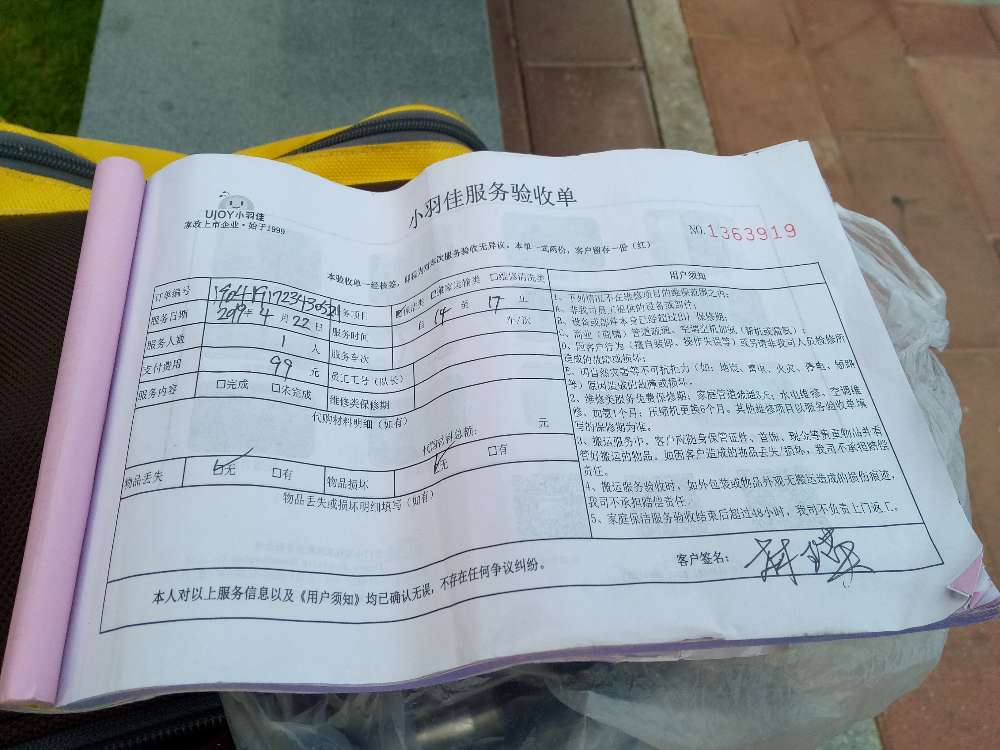 UJOY小羽佳
家政上市企业·始于1999
小羽佳服务验收单
NO.1363919
本验收单一经核签，即视为对本次服务验收无异议。本单一式两份，客户留存一份（红）
订单编号 服务项目 保洁类 搬家运输类 维修清洗类
服务日期 2019年4月22日 服务时间 自14至17止
服务人数 1人 服务车次 车/次
支付费用 99元 员工工号（队长）
服务内容 □完成 □未完成 维修类保修期
代购材料明细（如有）
代购材料总额： 元
物品丢失 □无 □有 物品损坏 □无 □有
物品丢失或损坏明细填写（如有）
用户须知
1、下列情况不在维修项目的维保范围之内：
A、非我司员工提供的设备或部件；
B、设备或部件本身已经超过出厂保修期；
C、商业（商铺）管道疏通、空调空机加氨（新机或漏氨）；
D、因客户行为（擅自装卸、操作失误等）或另请非我司人员检修所
造成的故障或损坏；
E、因自然灾害等不可抗拒力（如：地震、雷电、火灾、停电、短路
等）原因造成的故障或损坏。
2、维修类服务免费保修期：家庭管道疏通5天；水电维修、空调维
修、加氨1个月；压缩机更换6个月。其他维修项目以服务验收单填
写的保修期为准。
3、搬运服务中，客户应随身保管证件、首饰、现金等贵重物品并看
管好搬运的物品。如因客户造成的物品丢失/损坏，我司不承担赔偿
责任。
4、搬运服务验收时，如外包装或物品外观无搬运造成的损伤痕迹，
我司不承担赔偿责任。
5、家庭保洁服务验收结束后超过48小时，我司不负责上门返工。
本人对以上服务信息以及《用户须知》均已确认无误，不存在任何争议纠纷。
客户签名：